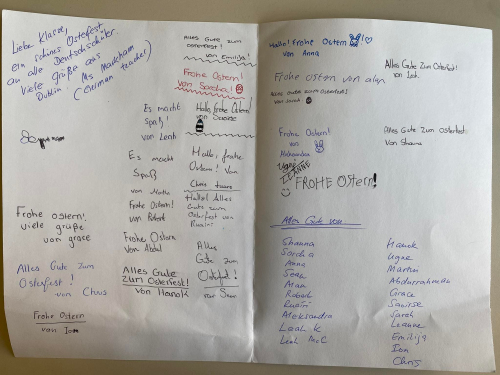 Liebe Klasse,
ein schönes Osterfest
an alle Deutschschüler.
Viele Grüße aus
Dublin. Ms Markham
(German teacher)
Frohe Ostern!
viele grüße
von grace
Alles Gute zum
Osterfest!
von Chris
Frohe Ostern
von Ion
Es macht
Spaß!
von Leah
Es macht
Spaß
von
Frohe Ostern!
von Robert
Frohe Ostern
von Abdul
Alles Gute
zum Osterfest!
von Hanok
Alles Gute zum
Osterfest!
von Emilija
Frohe Ostern!
von Sorcha!
Hallo, frohe Ostern!
von Saoirse
Hallo, frohe
Ostern! Von
Hallo! Alles
Gute zum
Osterfest von
Rusiri
Alles
Gute zum
Osterfest!
von Sean
Hallo! Frohe Ostern
von Anna
Alles Gute Zum Osterfest!
von Leah
Frohe ostern von alan
Alles Gute zum Osterfest!
von Sarah
Frohe Ostern!
von
Aleksandra
Alles Gute zum Osterfest
von Shauna
Ugne
LEANNE
FROHE Ostern!
Alles Gute von
Shauna
Sorcha
Anna
Sean
Alan
Robert
Rusiri
Aleksandra
Leah K
Leah McC
Hanok
Ugne
Martin
Abdurrahman
Grace
Saoirse
Sarah
Leanne
Emilija
Ion
Chris